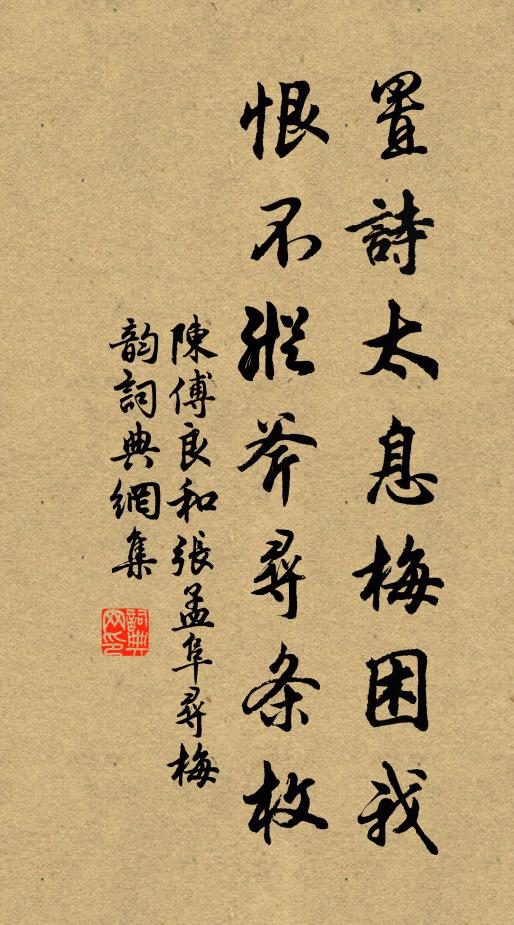 置詩太息梅困我
恨不縱斧尋条枚
陳傅良和張孟阜尋梅
韵詞典網集
詞典
网印